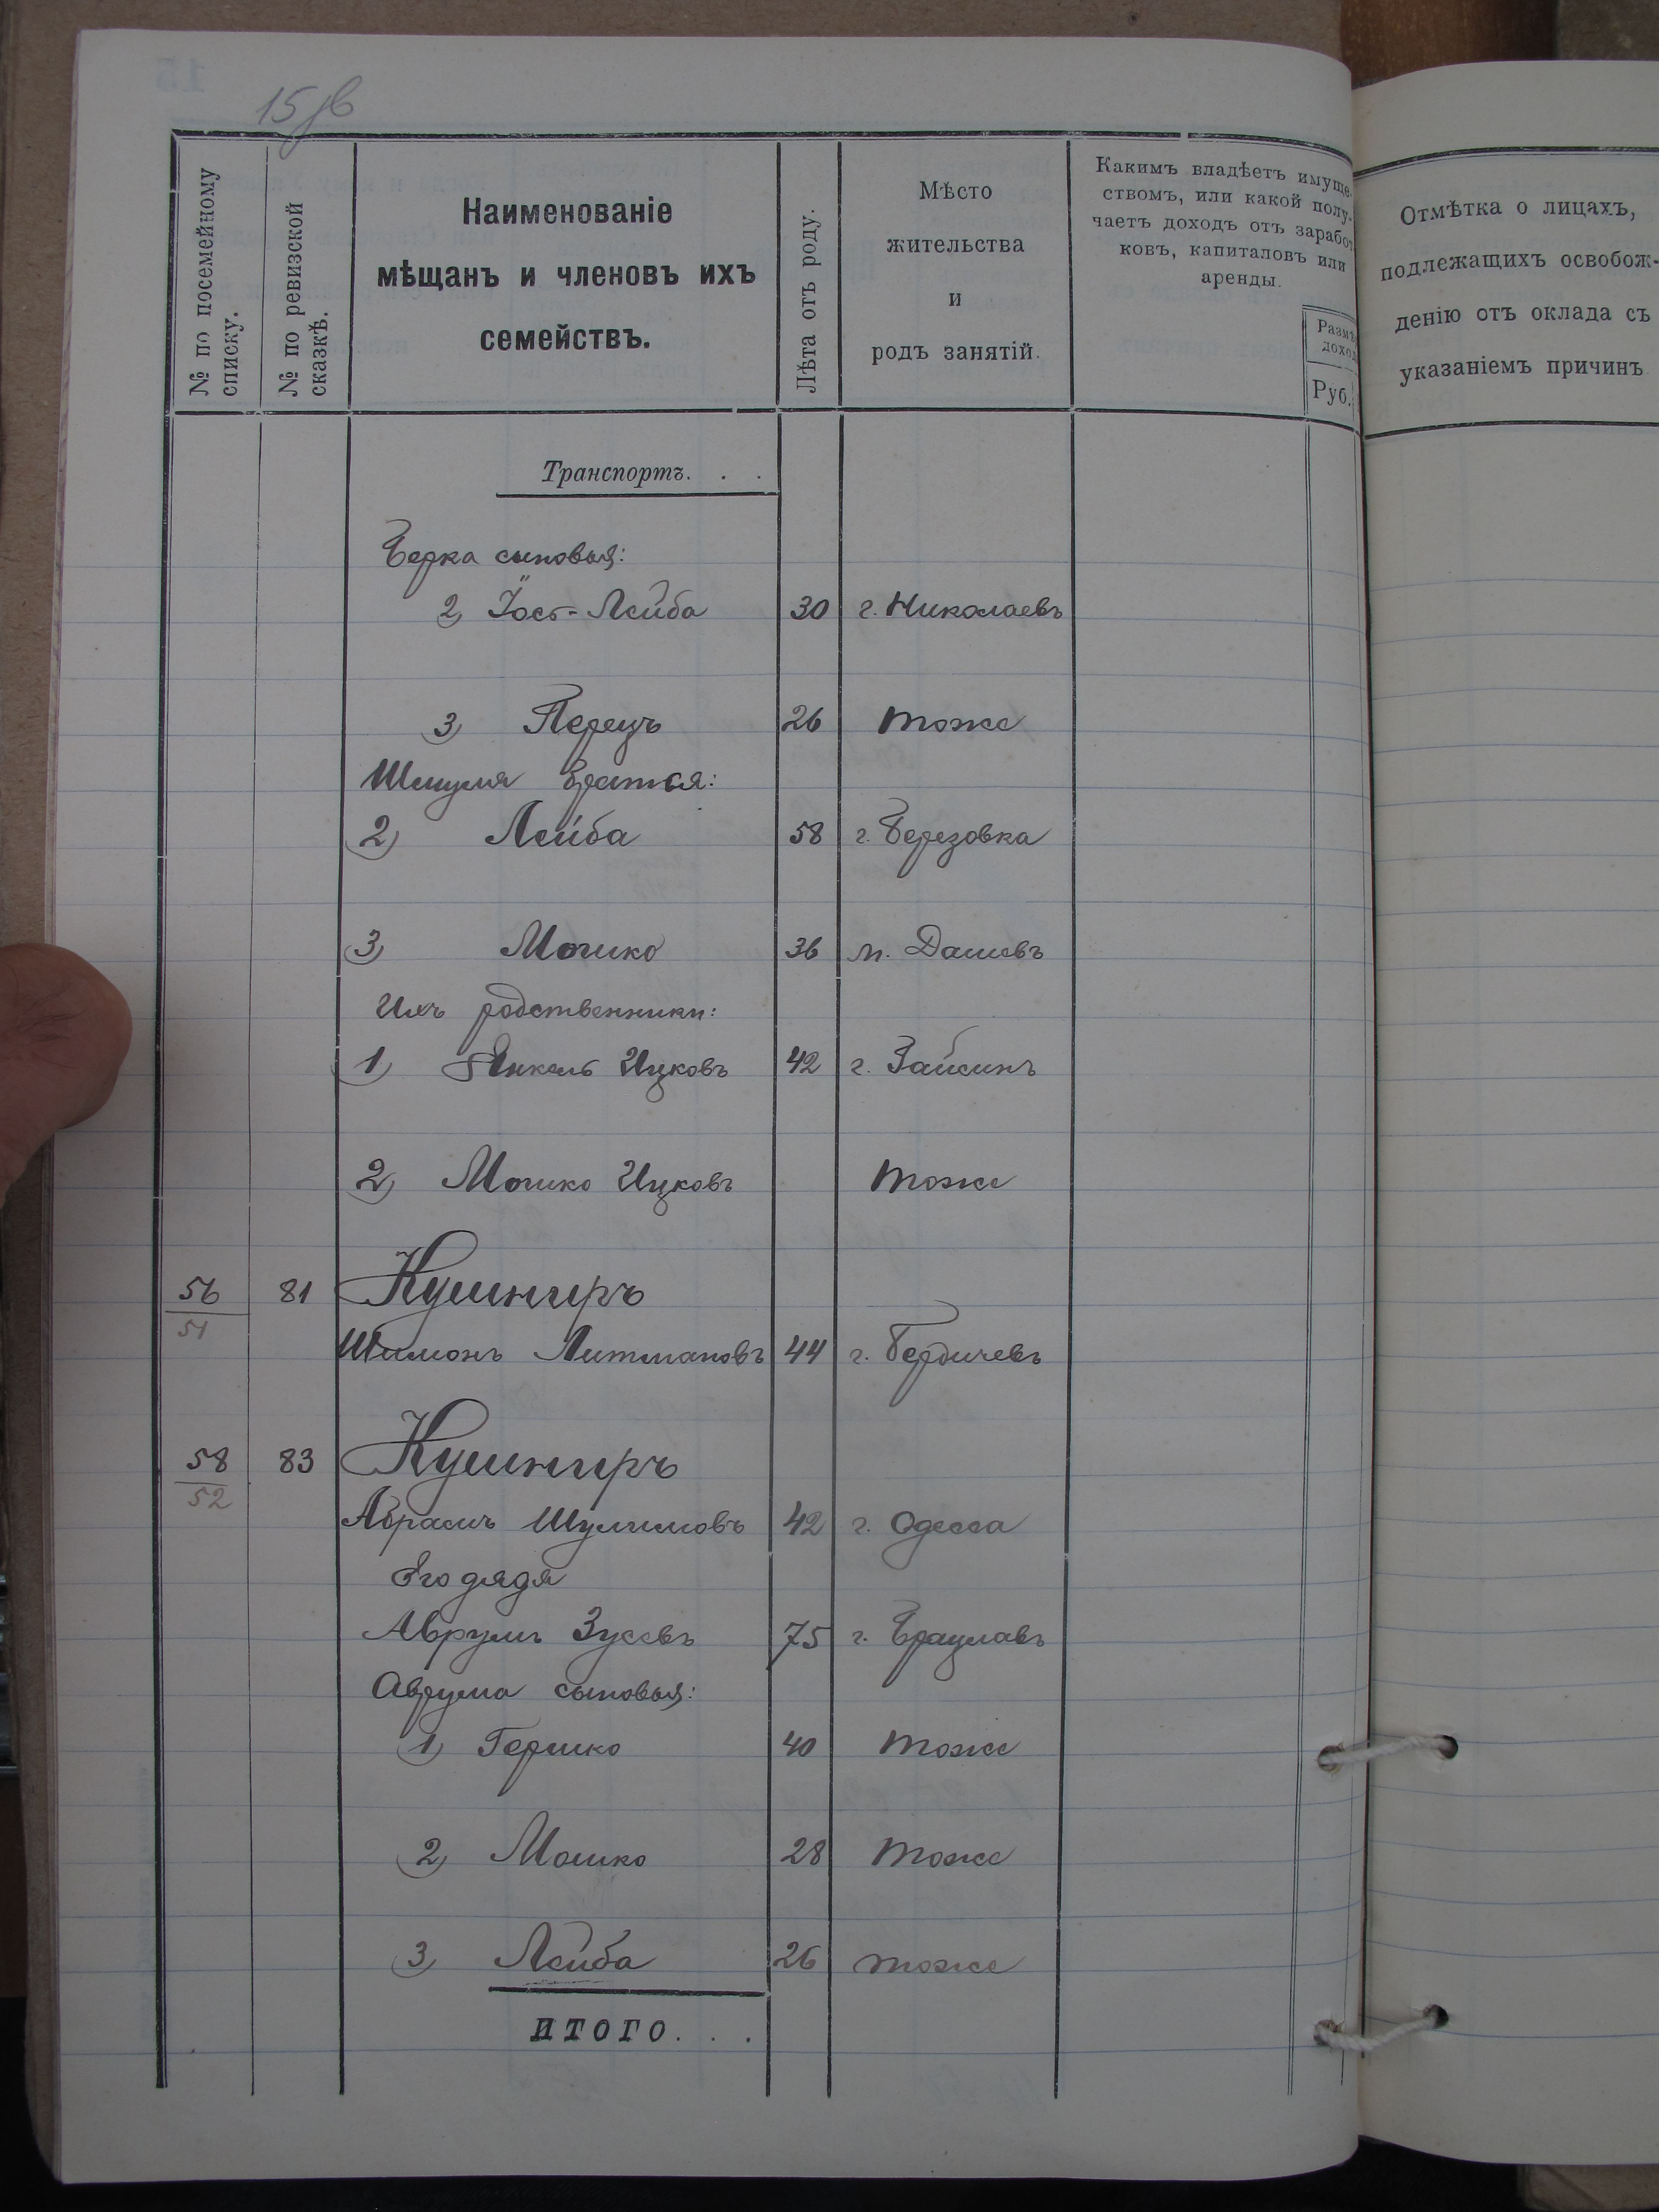 15 об
№ по посемейному
списку.
№ по ревизской
сказкѣ.
Наименованіе
мѣщанъ и членовъ ихъ
семействъ.
Лѣта отъ роду.
Мѣсто
жительства
и
родъ занятій.
Какимъ владѣетъ имуще-
ствомъ, или какой полу-
чаетъ доходъ отъ заработ
ковъ, капиталовъ или
аренды.
Размѣ
доход
Руб.
Отмѣтка о лицахъ,
подлежащихъ освобож-
денію отъ оклада съ
указаніемъ причинъ
Транспортъ. . .
Берка сыновья:
2) Іос-Лейба 30 г. Николаевъ
3) Перецъ 26 тоже
Шмуля братья:
2) Лейба 58 г. Березовка
3) Мошко 36 м. Дашевъ
Ихъ родственники:
1) Янкель Ицковъ 42 г. Гайсинъ
2) Мошко Ицковъ тоже
56 81 Кушниръ
51
Шимонъ Литмановъ 44 г. Бердичевъ
58 83 Кушниръ
52
Абрамъ Шулимовъ 42 г. Одесса
Его дядя
Аврумъ Зусевъ 75 г. Брацлавъ
Аврума сыновья:
1) Гершко 40 тоже
2) Мошко 28 тоже
3) Лейба 26 тоже
ИТОГО. . .